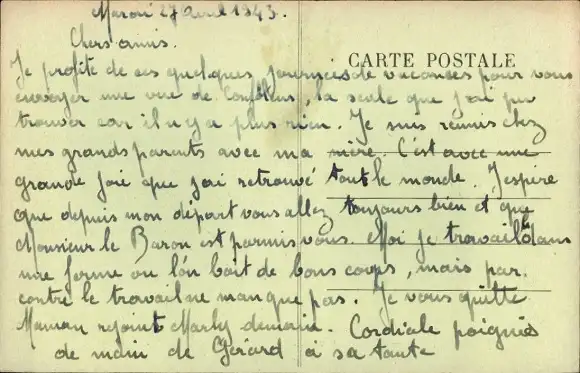 Mardi 27 avril 1943.
Chers amis.
CARTE POSTALE
Je profite de ces quelques journées de vacances pour vous
envoyer une vue de Confolens, la seule que j'ai pu
trouver car il n'y a plus rien. Je suis réunis chez
mes grands parents avec ma mère. C'est avec une
grande joie que j'ai retrouvé tout le monde. J'espère
que depuis mon départ vous allez toujours bien et que
Monsieur le Baron est parmis vous. Moi je travaille dans
une ferme ou l'on boit de bons coups, mais par
contre le travail ne manque pas. Je vous quitte
Maman rejoint Marly demain. Cordiale poignée
de main de Gérard à sa tante